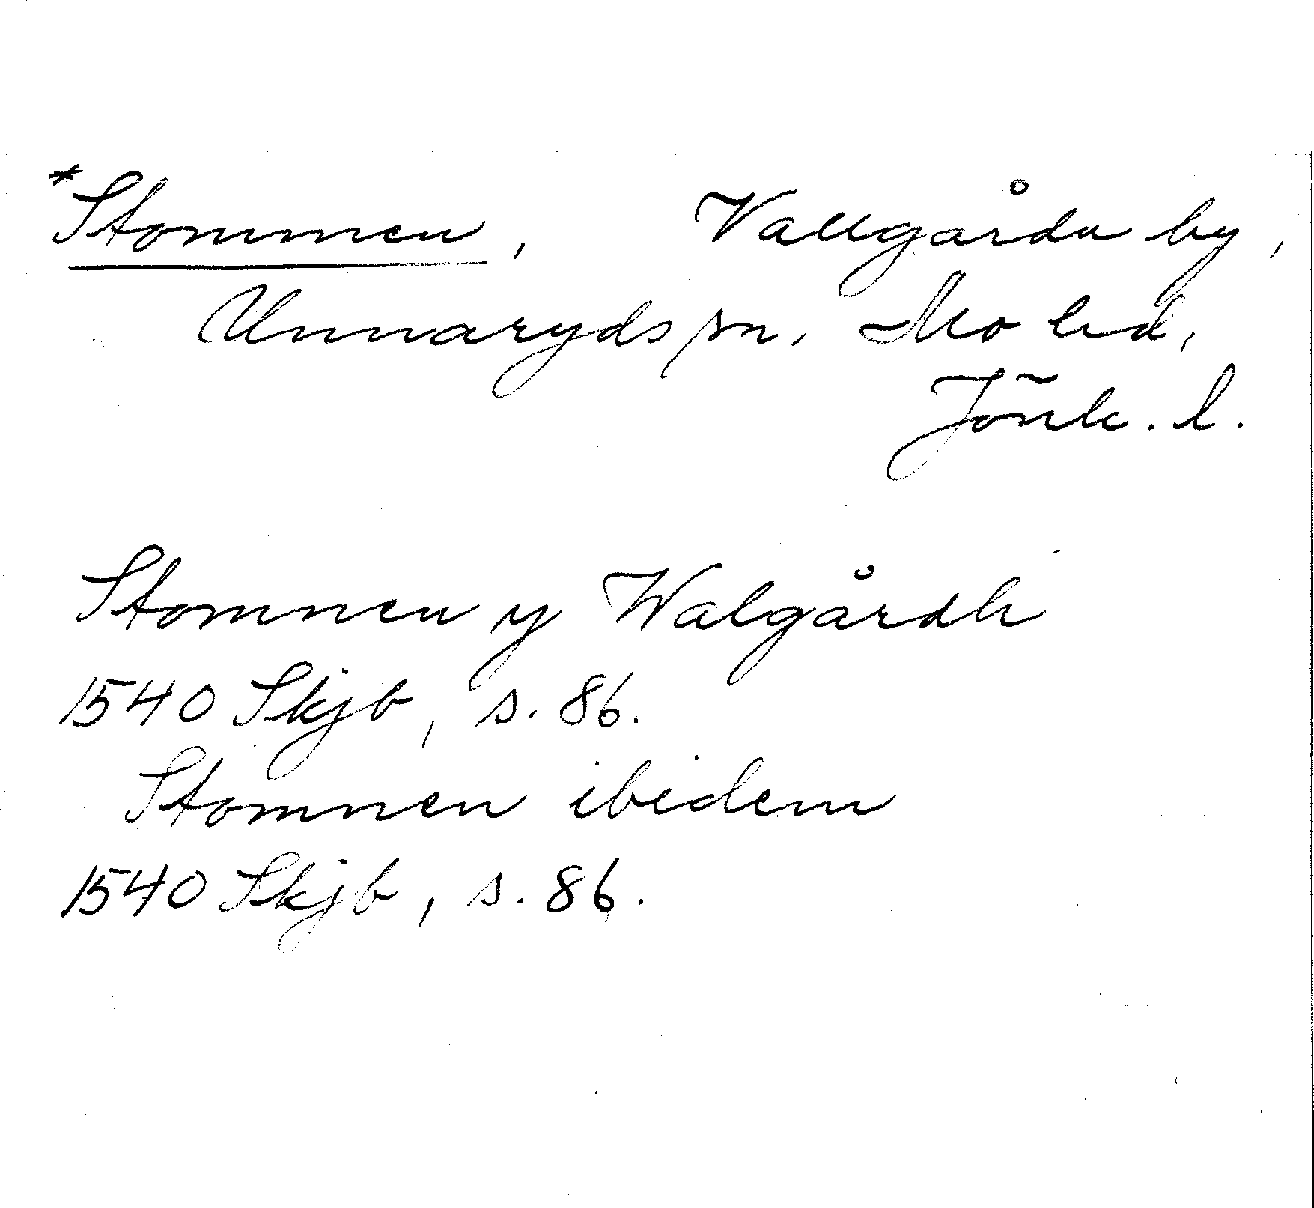 *Stommen, Vallgårda by,
Unnaryds sn, Mo hd,
Jönk. l.
Stomnen y Walgårdh
1540 Skjb, s. 86.
Stomnen ibidem
1540 Skjb, s. 86.